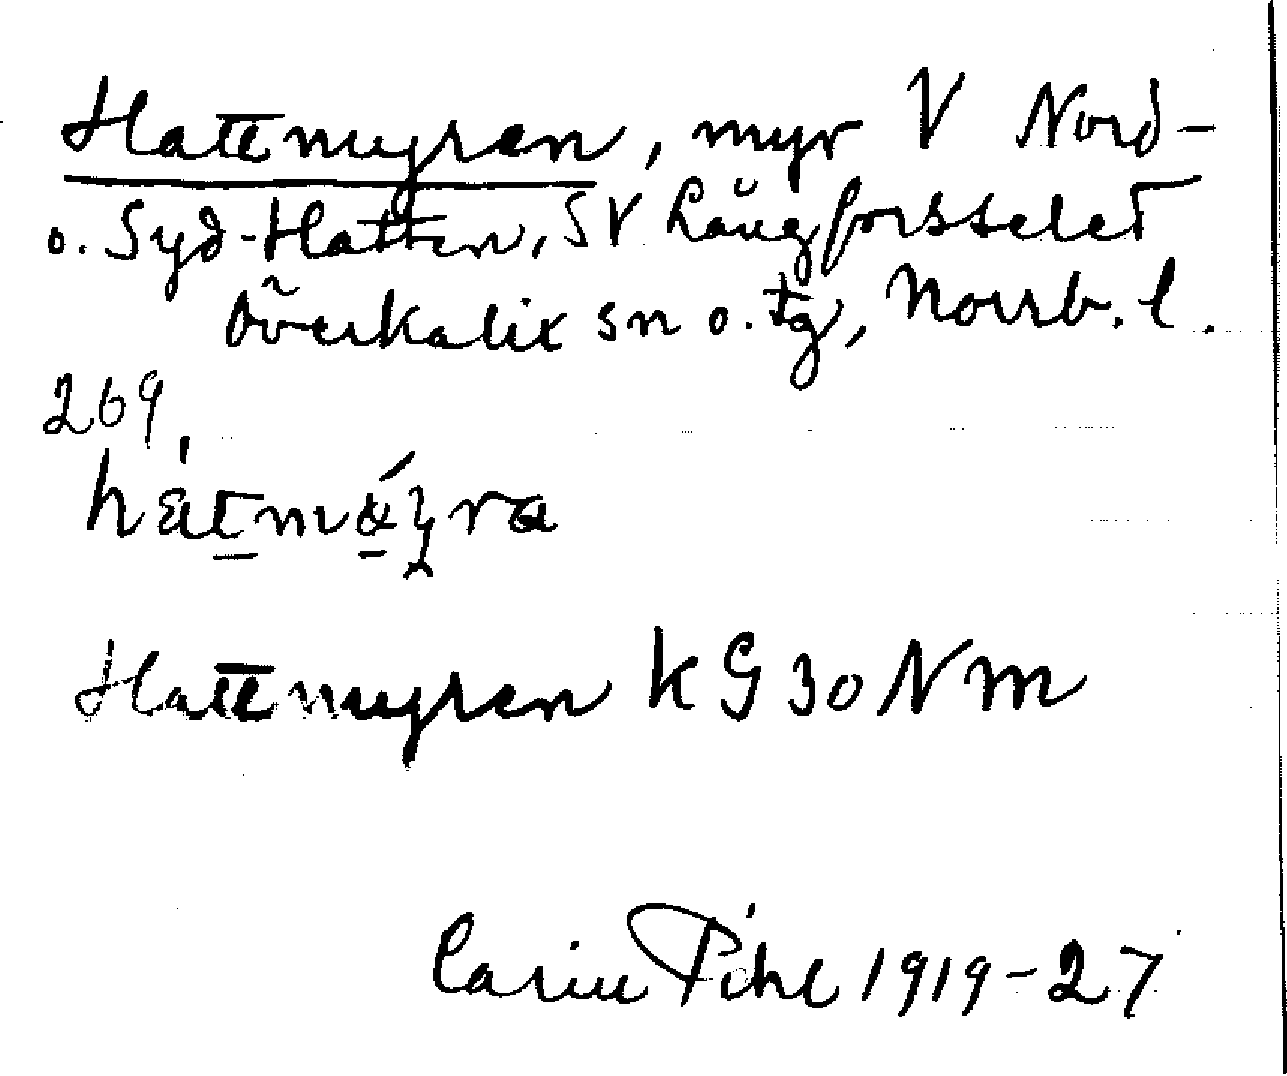 Hattmyran, myr V Nord-
o. Syd-Hatten, SV Långforsselet
Överkalix sn o. tg, Norrb. l.
269
Hattmyran kG 30 NM
Carin Pihl 1919-27